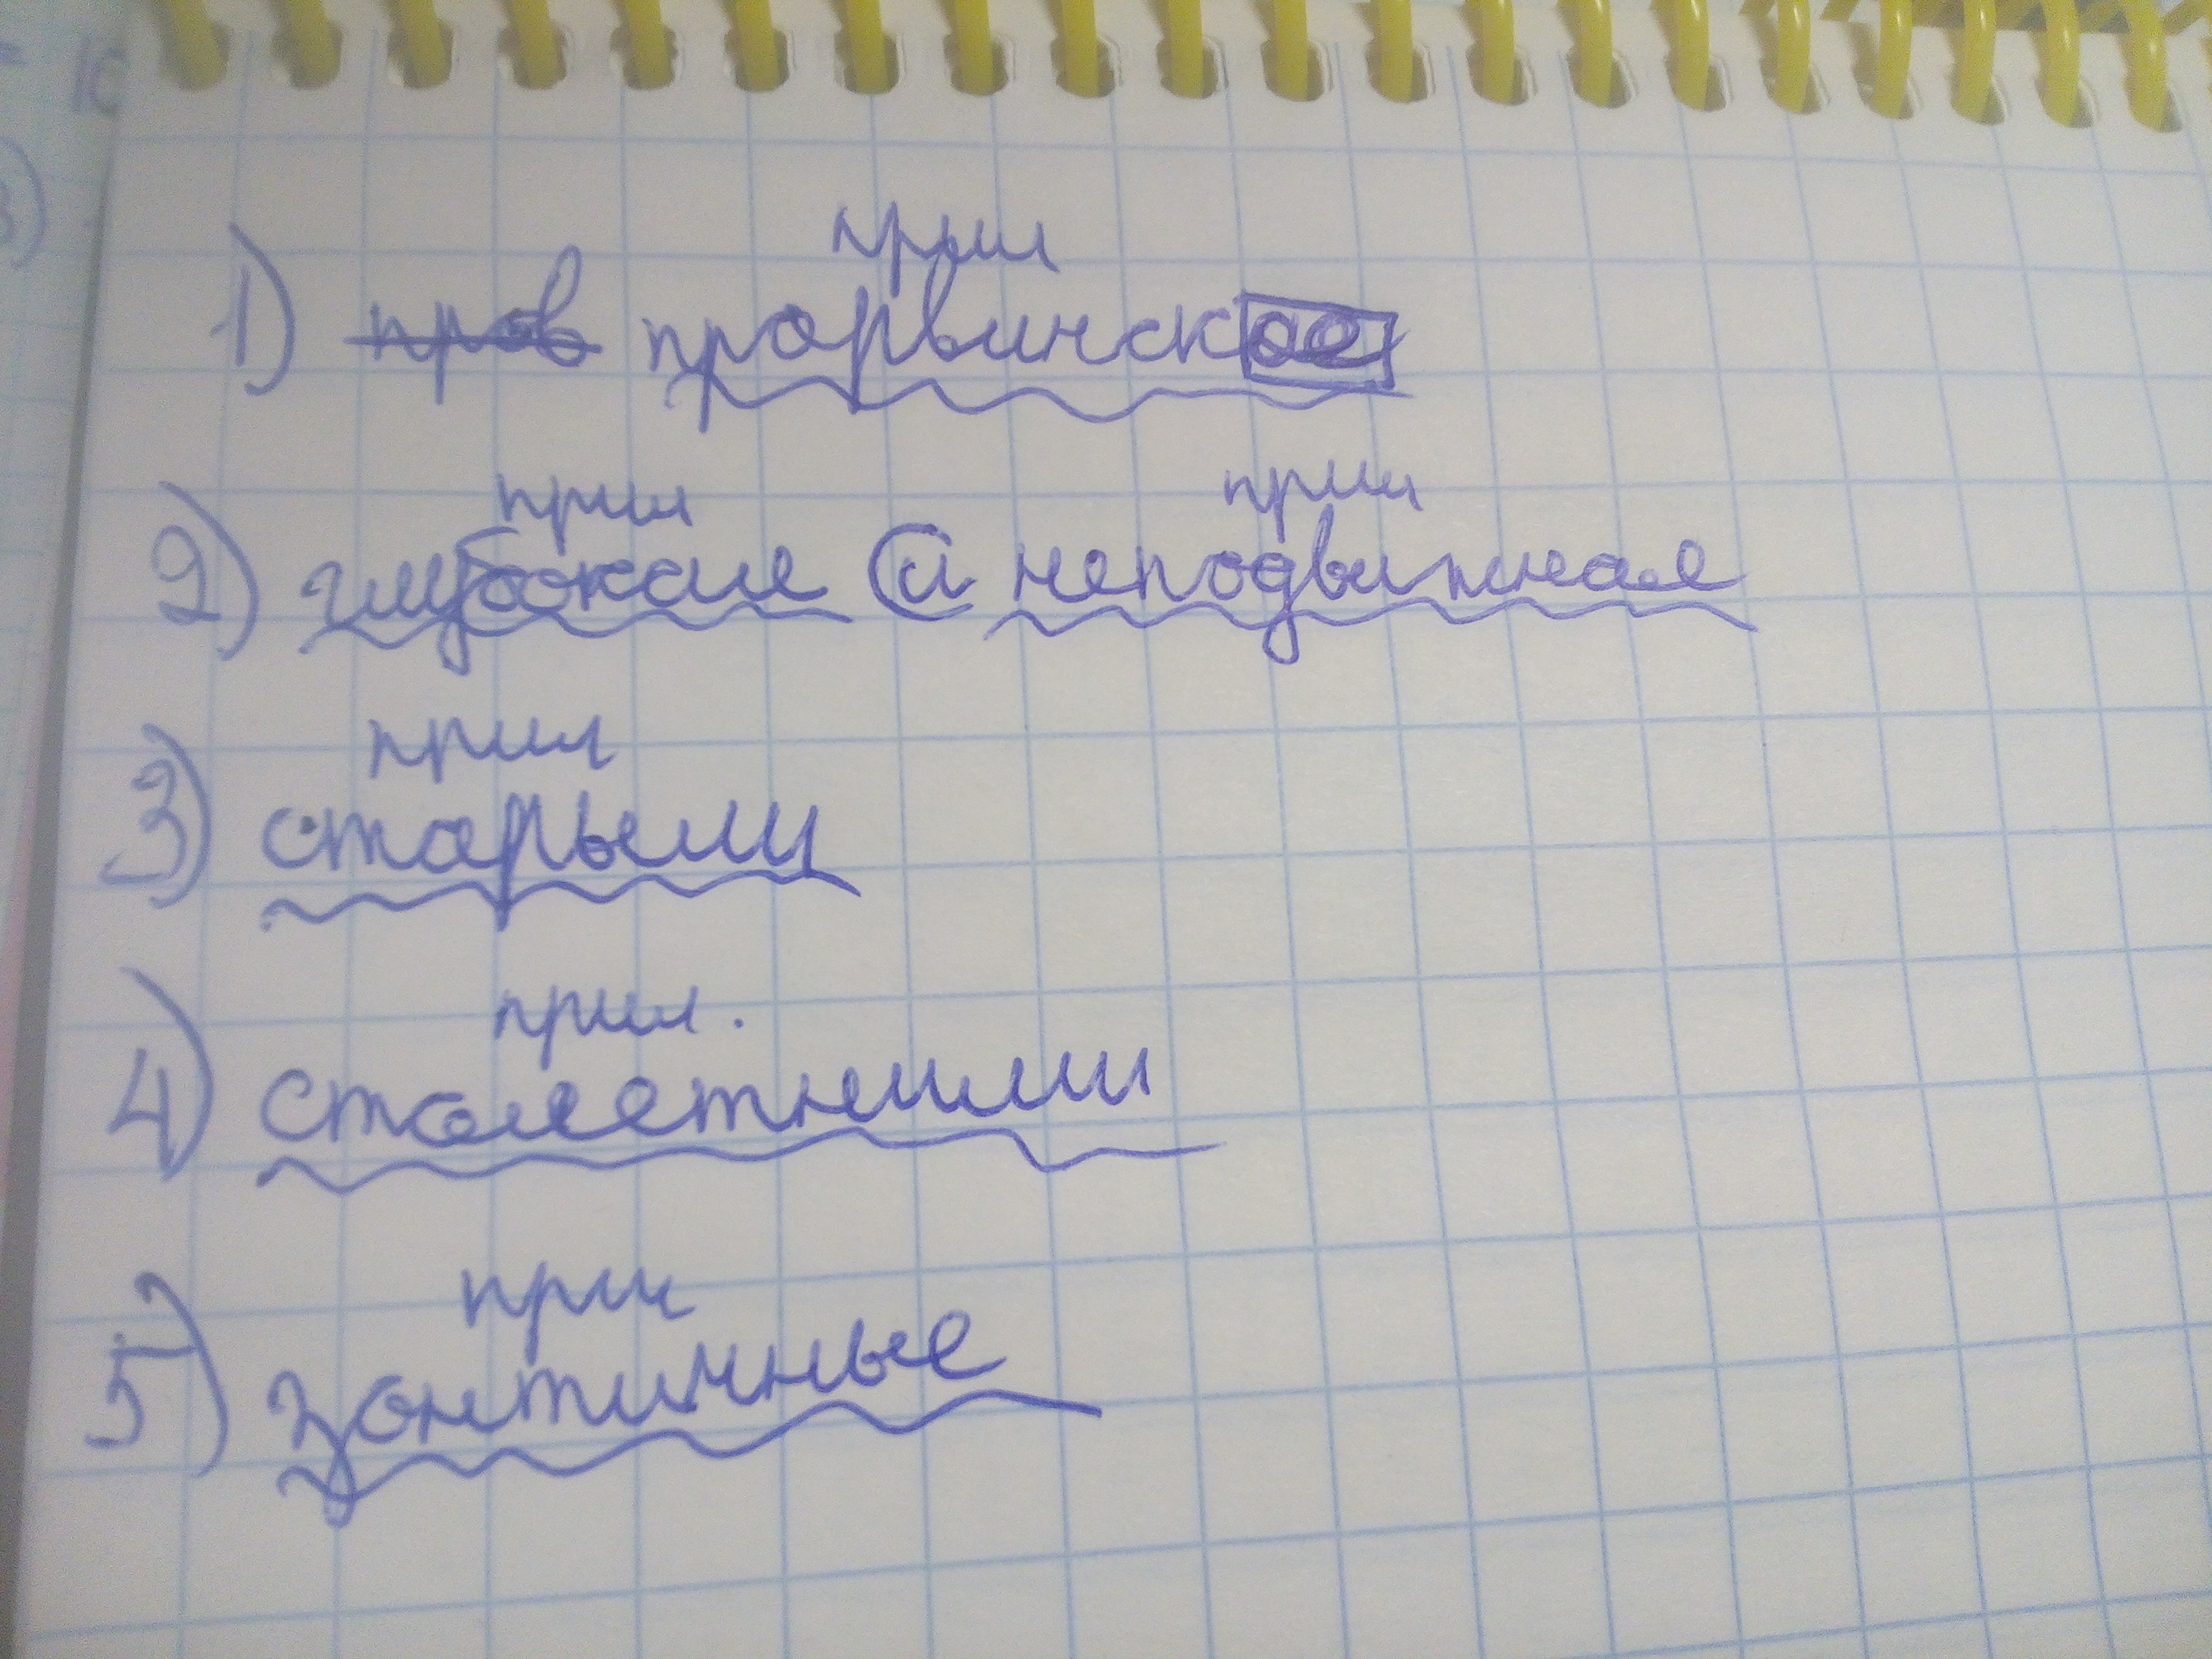 10
3)
прил
1) пров прорвинское
прил прил
2) глубокая и неподвижная
прил
3) старыми
прил.
4) столетними
прил
5) зонтичные